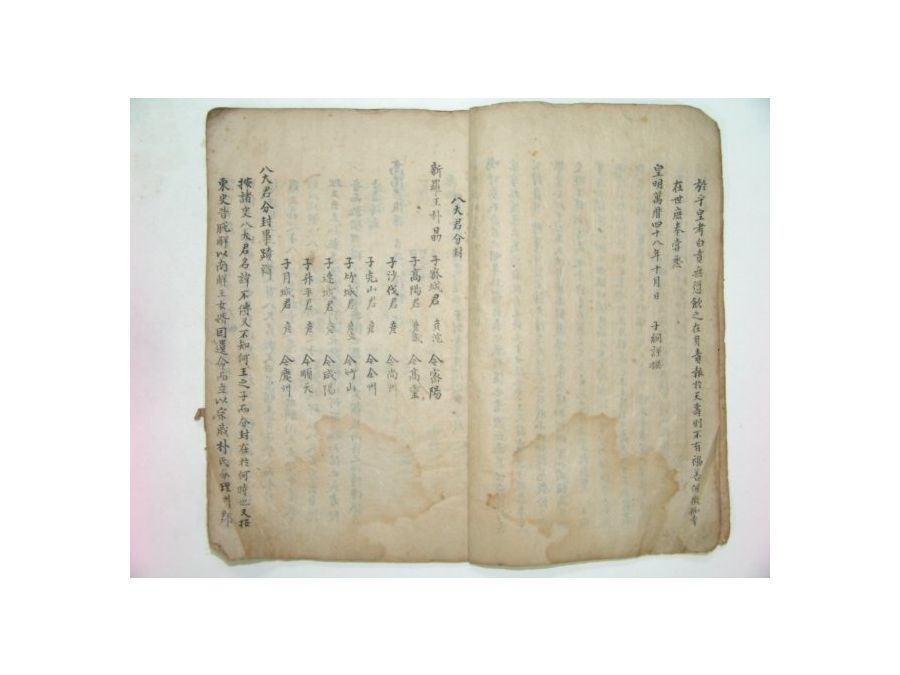 於乎皇考白貴無愆飮之在身責報於天壽則不有禍善
在世庶奉嘗
皇明萬曆四十八年十月日 子綱謹撰
八大君分封
新羅王 子密城君 彦 今密陽
子高陽君 彦 今高靈
子沙伐君 彦 今尙州
子完山君 彦 今全州
子竹城君 彦 今竹山
子逵城君 彦 今咸陽
子升平君 彦 今順天
子月城君 彦 今慶州
八大君分封事蹟
按諸史八大君名諱不傳又不知何王之子而分封在於何時也又按
東史昔脫解以南解王女壻因遺命而立以宗戚朴氏分理州郡